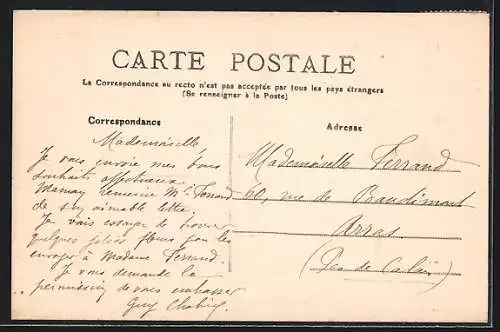 CARTE POSTALE
La Correspondance au recto n'est pas acceptée par tous les pays étrangers
(Se renseigner à la Poste)
Correspondance
Adresse
Mademoiselle,
Je vous envoie mes bons
souhaits affectueux
Maman remercie Me Ferrand
de son aimable lettre.
Je vais essayer de trouver
quelques jolies fleurs pour les
envoyer à Madame Ferrand.
Je vous demande la
permission de vous embrasser
Guy
Mademoiselle Ferrand
60, rue de Baudimont
Arras
(Pas de Calais)